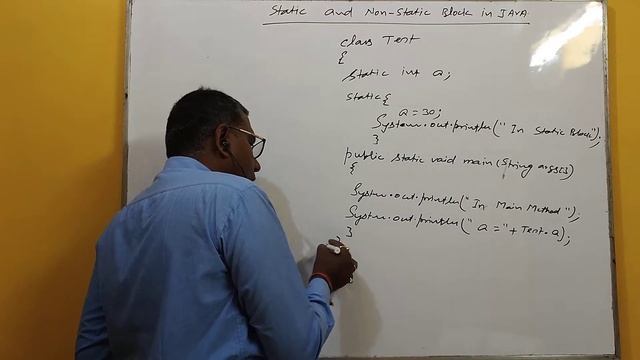 Static and Non-Static Block in JAVA
class Test
{
static int a;
static{
a = 30;
System.out.println("In Static Block");
}
public static void main(String args[])
{
System.out.println("In Main Method");
System.out.println("a="+Test.a);
}
}